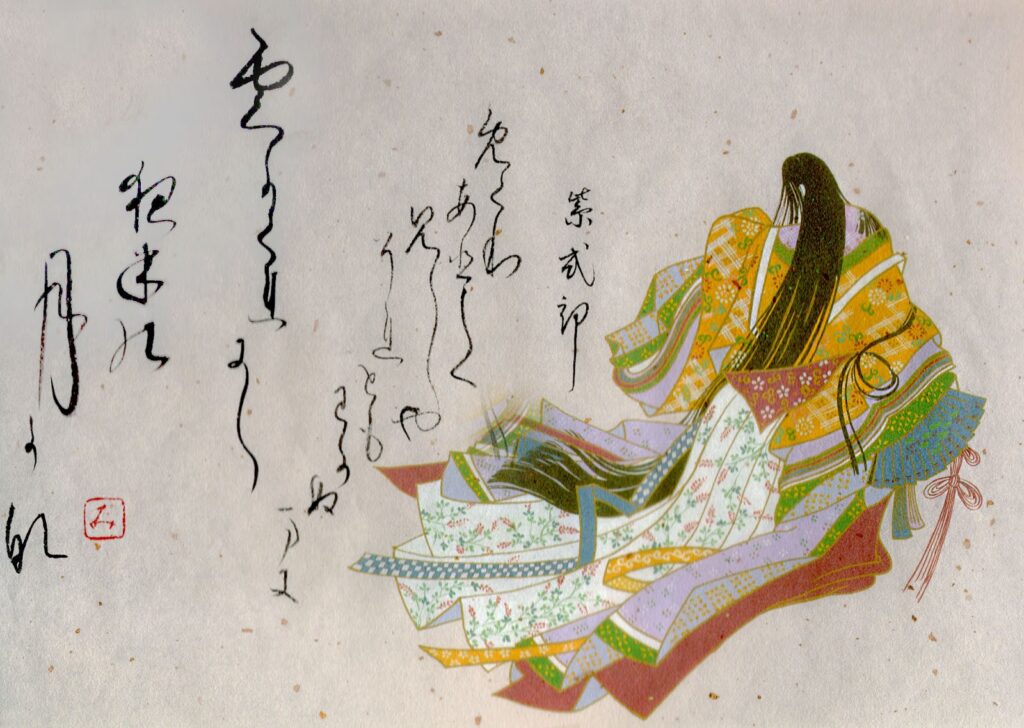 紫式部
めくり
あひて
見しや
それ
とも
わかぬ
まに
雲かくれにし
夜半の
月かな